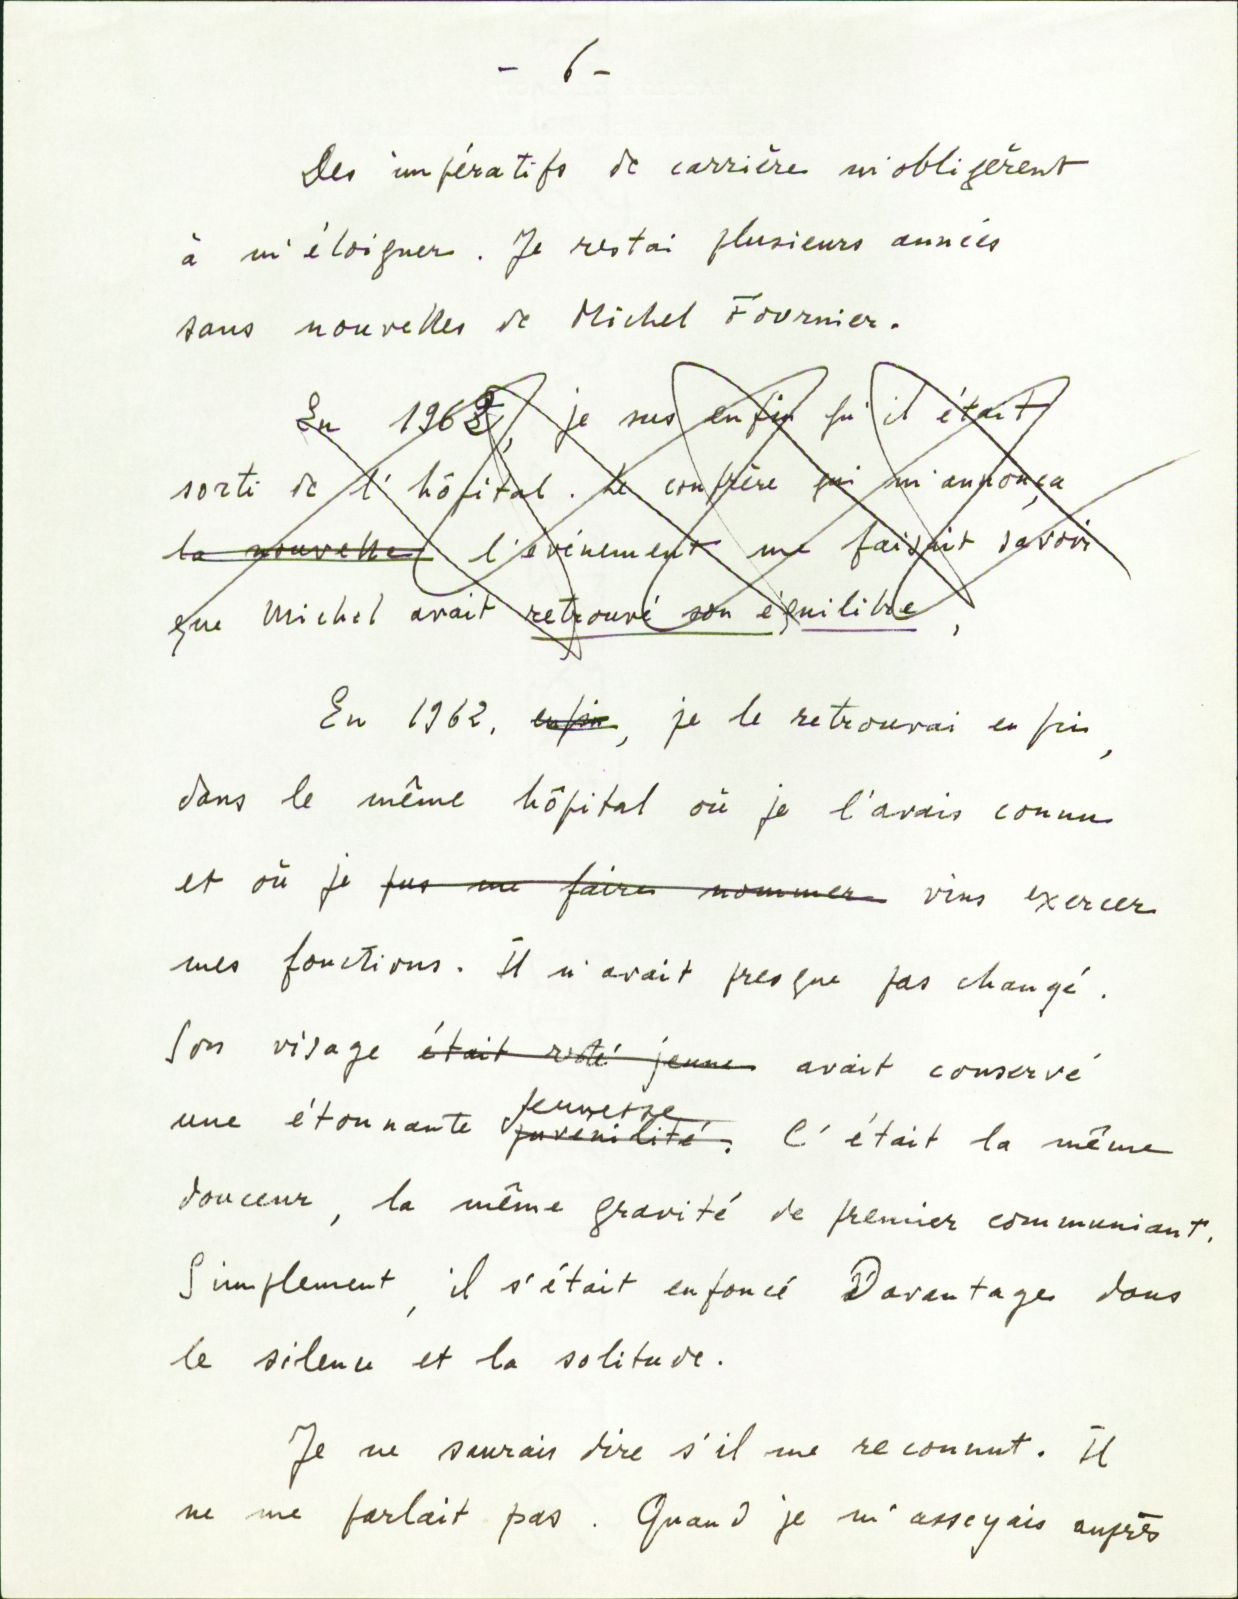 - 6 -
Des impératifs de carrière m'obligèrent
à m'éloigner. Je restai plusieurs années
sans nouvelles de Michel Fournier.
En 1962, je sus enfin qu'il était
sorti de l'hôpital. Le confrère qui m'annonça
la nouvelle l'événement me faisait savoir
que Michel avait retrouvé son équilibre,
En 1962, enfin, je le retrouvai enfin,
dans le même hôpital où je l'avais connu
et où je pus me faire nommer vins exercer
mes fonctions. Il n'avait presque pas changé.
Son visage était resté jeune avait conservé
une étonnante juvénilité. jeunesse C'était la même
douceur, la même gravité de premier communiant.
Simplement, il s'était enfoncé Davantage dans
le silence et la solitude.
Je ne saurais dire s'il me reconnut. Il
ne me parlait pas. Quand je m'asseyais auprès